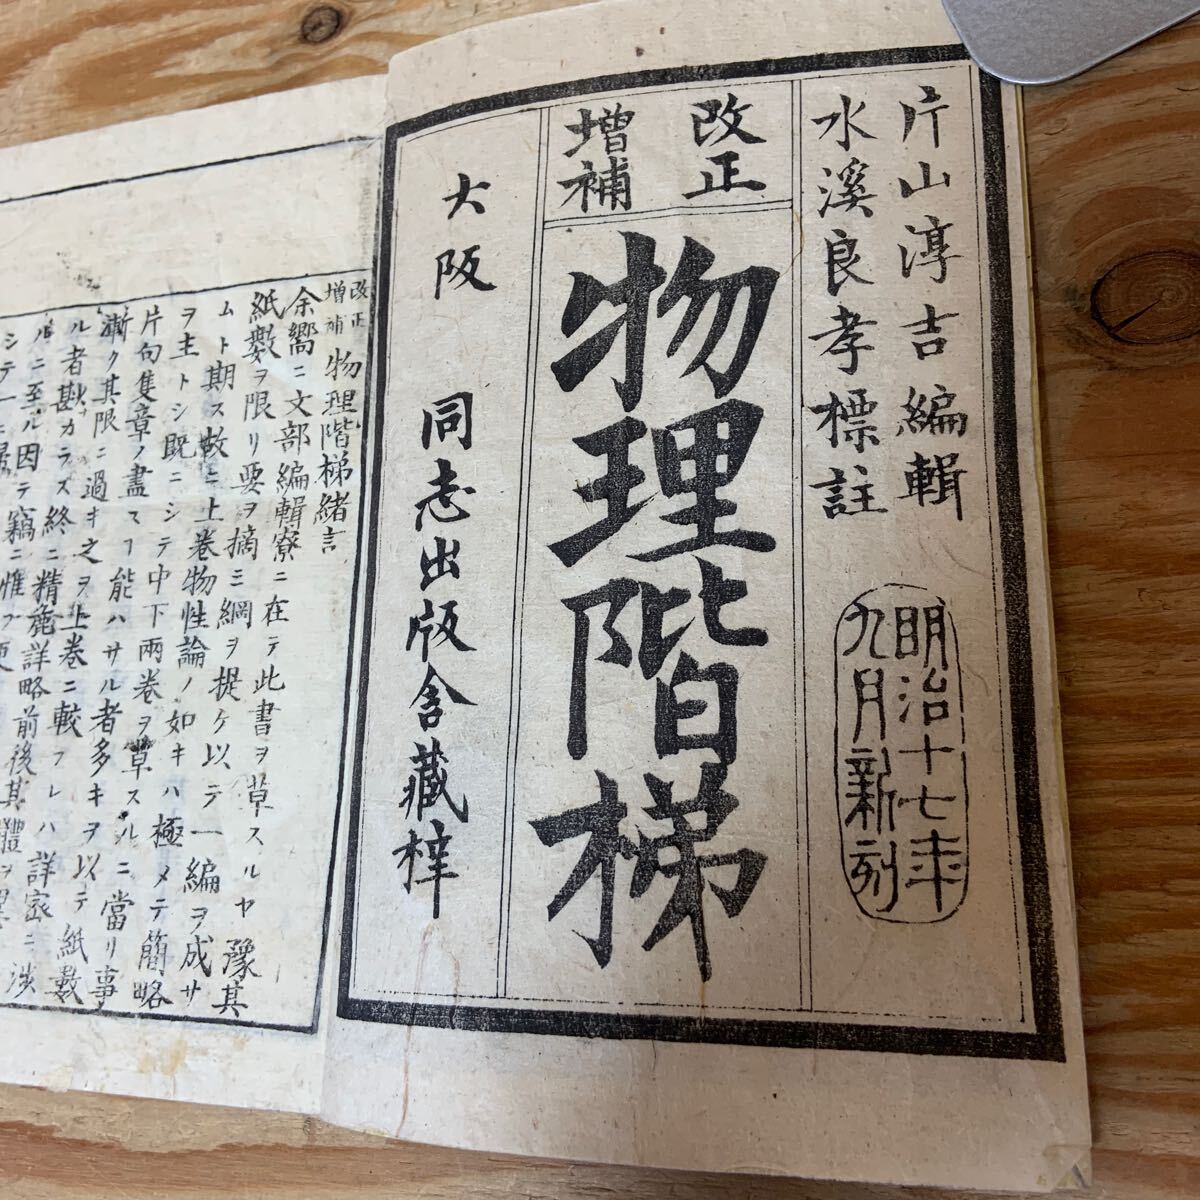 片山淳吉編輯
水溪良孝標註
明治十七年
九月新刻
改正
增補
物理階梯
大阪 同志出版舎藏梓
改正
增補
物理階梯緒言
余嚮ニ文部編輯寮ニ在テ此書ヲ草スルヤ豫其
紙數ヲ限リ要ヲ摘ミ綱ヲ提ケ以テ一編ヲ成サ
ムト期ス故ニ上巻物性論ノ如キハ極メテ簡略
ヲ主トシ既ニシテ中下兩巻ヲ草スルニ當リ事
片句隻章ノ盡ス能ハサル者多キヲ以テ紙數
漸ク其限ニ過キ之ヲ上巻ニ較フレハ詳密ニ渉
ル者尠カラス終ニ精麁詳略前後其體ヲ
ルニ至ル因テ竊ニ惟フ
シテ一ニ歸